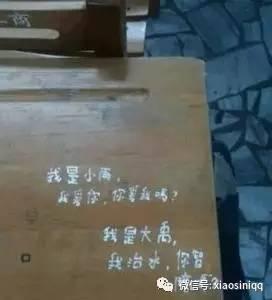 我是小雨,
我爱你,你爱我吗?
我是大禹,
我治水,你智
微信号: xiaosiniqq